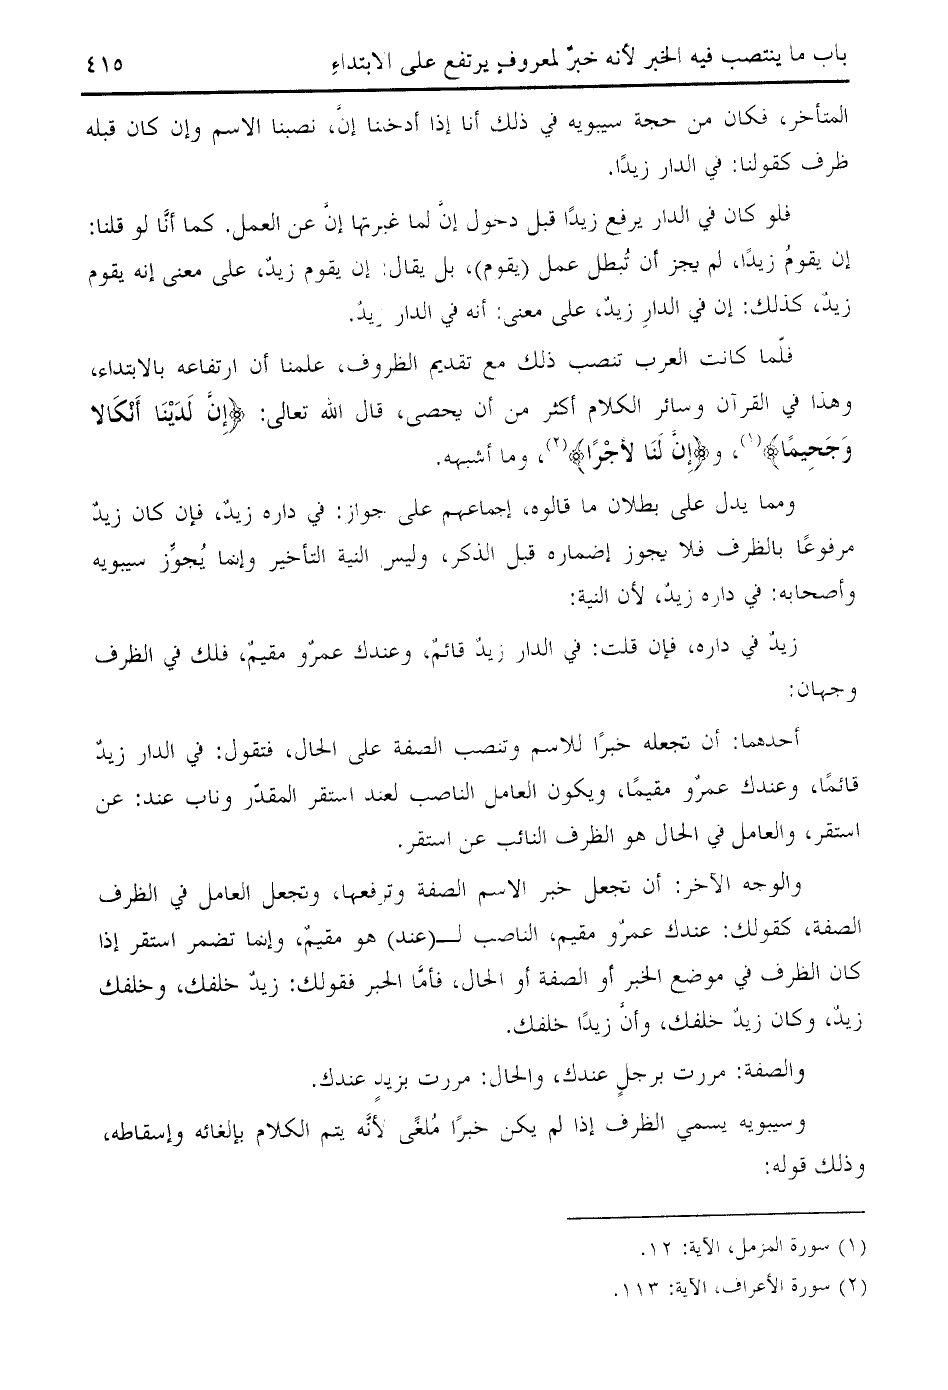 باب ما ينتصب فيه الخبر لأنه خبرٌ لمعروفٍ يرتفع على الابتداءِ ٤١٥
المتأخر، فكان من حجة سيبويه في ذلك أنا إذا أدخلنا إنَّ، نصبنا الاسم وإن كان قبله
ظرف كقولنا: في الدار زيدًا.
فلو كان في الدار يرفع زيدًا قبل دخول إنَّ لما غيرتها إنَّ عن العمل. كما أنَّا لو قلنا:
إن يقومُ زيدًا، لم يجز أن تُبطل عمل (يقوم)، بل يقال: إن يقوم زيدٌ، على معنى إنه يقوم
زيدٌ، كذلك: إن في الدارِ زيدٌ، على معنى: أنه في الدار زيدٌ.
فلّما كانت العرب تنصب ذلك مع تقديم الظروف، علمنا أن ارتفاعه بالابتداء،
وهذا في القرآن وسائر الكلام أكثر من أن يحصى، قال الله تعالى: ﴿إِنَّ لَدَيْنَا أَنْكَالا
وَجَحِيمًا﴾(١)، و﴿إِنَّ لَنَا لأَجْرًا﴾(٢)، وما أشبهه.
ومما يدل على بطلان ما قالوه، إجماعهم على جواز: في داره زيدٌ، فإن كان زيدٌ
مرفوعًا بالظرف فلا يجوز إضماره قبل الذكر، وليس النية التأخير وإنما يُجوِّز سيبويه
وأصحابه: في داره زيدٌ، لأن النية:
زيدٌ في داره، فإن قلت: في الدار زيدٌ قائمٌ، وعندك عمرٌو مقيمٌ، فلك في الظرف
وجهان:
أحدهما: أن تجعله خبرًا للاسم وتنصب الصفة على الحال، فتقول: في الدار زيدٌ
قائمًا، وعندك عمرٌو مقيمًا، ويكون العامل الناصب لعند استقر المقدّر وناب عند: عن
استقر، والعامل في الحال هو الظرف النائب عن استقر.
والوجه الآخر: أن تجعل خبر الاسم الصفة وترفعها، وتجعل العامل في الظرف
الصفة، كقولك: عندك عمرٌو مقيم، الناصب لـــ(عند) هو مقيمٌ، وإنما تضمر استقر إذا
كان الظرف في موضع الخبر أو الصفة أو الحال، فأمَّا الخبر فقولك: زيدٌ خلفك، وخلفك
زيدٌ، وكان زيدٌ خلفك، وأنَّ زيدًا خلفك.
والصفة: مررت برجلٍ عندك، والحال: مررت بزيدٍ عندك.
وسيبويه يسمي الظرف إذا لم يكن خبرًا مُلغًى لأنَّه يتم الكلام بإلغائه وإسقاطه،
وذلك قوله:
(١) سورة المزمل، الآية: ١٢.
(٢) سورة الأعراف، الآية: ١١٣.